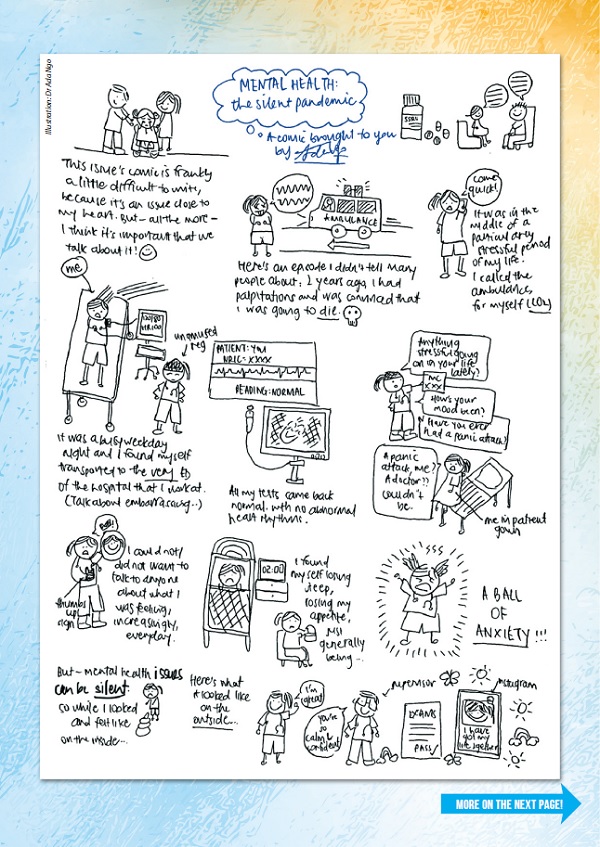 Illustration: Dr Ada Ngo
MENTAL HEALTH:
the silent pandemic
A comic brought to you
by
SSRI
This issue's comic is frankly
a little difficult to write,
because it's an issue close to
my heart. But - all the more -
I think it's important that we
talk about it!
AMBULANCE
Here's an episode I didn't tell many
people about: 2 years ago, I had
palpitations and was convinced that
I was going to die.
come
quick!
It was in the
middle of a
particularly
stressful period
of my life.
I called the
ambulance
for myself (LOL)
me
HR100
unamused
reg
It was a busy weekday
night and I found myself
transported to the very ED
of the hospital that I work at.
(Talk about embarrassing...)
PATIENT: YOU
NRIC: XXXX
READING: NORMAL
All my tests came back
normal. With no abnormal
heart rhythms.
Anything
stressful going
on in your life
lately?
MC
XXX
How's your
mood been?
Have you ever
had a panic attack?
A panic
attack, me??
A doctor??
Couldn't
be.
me in patient
gown
thumbs
up
sign
I could not/
did not want to
talk to anyone
about what I
was feeling,
increasingly,
everyday.
02:00
I found
myself losing
sleep,
losing my
appetite,
just
generally
being...
A BALL
OF
ANXIETY!!!
But - mental health issues
can be silent.
so while I looked
and felt like
on the inside...
Here's what
it looked like
on the
outside...
I'm
great!
You're
so
calm &
confident
supervisor
EXAMS
PASS
instagram
I have
got my
life together
MORE ON THE NEXT PAGE!